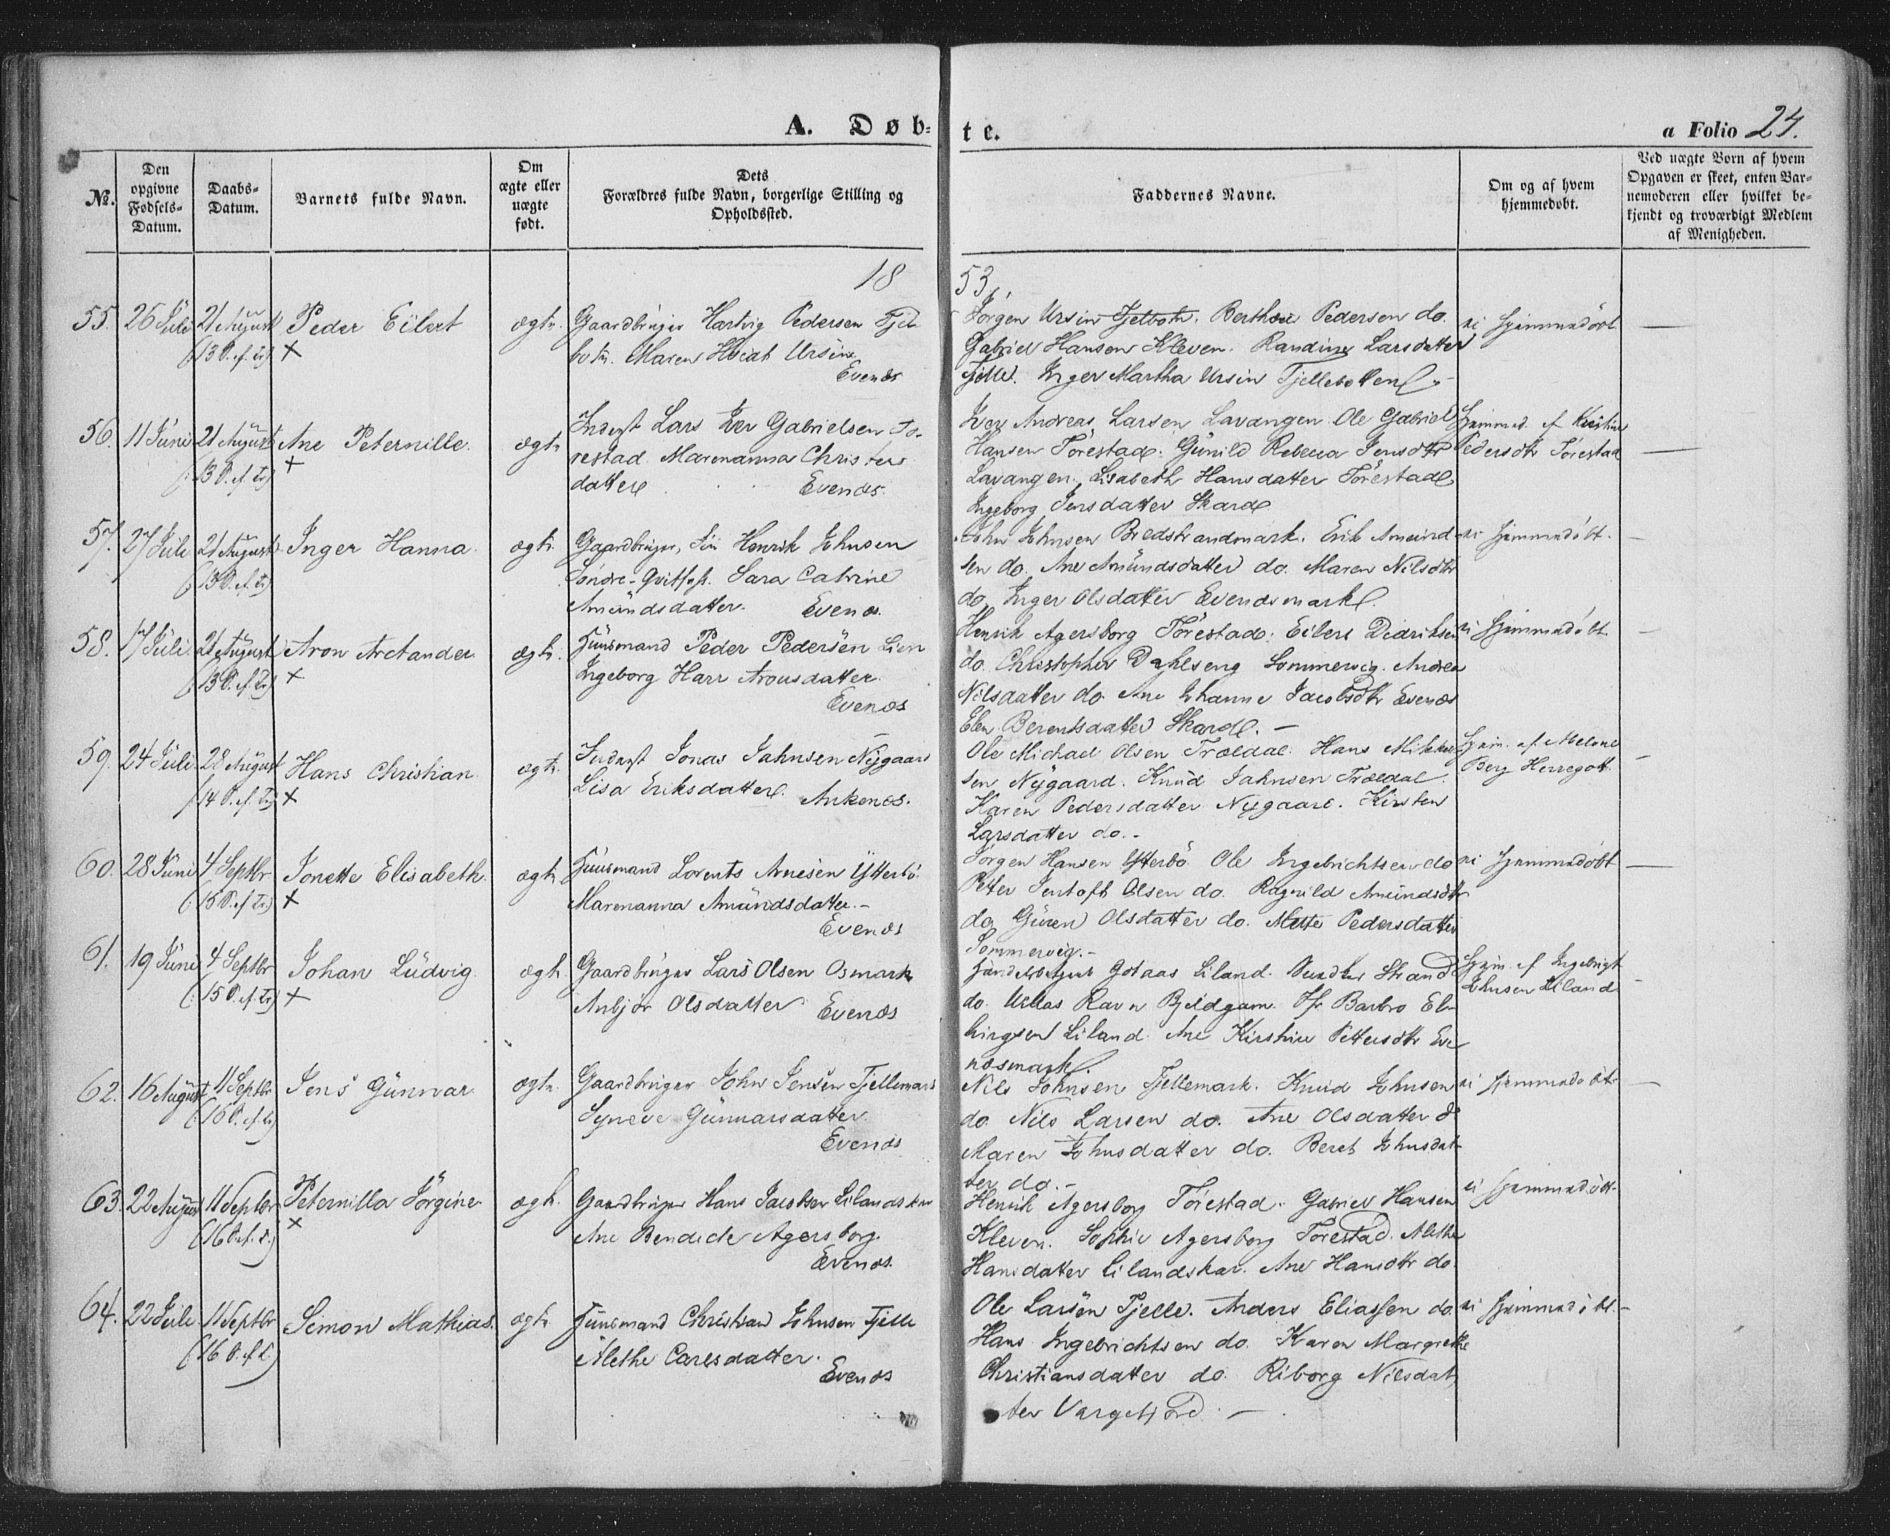 A. Døb-
te.
a Folio 24.
№.
Den opgivne Fødsels-Datum.
Daabs-Datum.
Barnets fulde Navn.
Om ægte eller uægte født.
Dets Forældres fulde Navn, borgerlige Stilling og Opholdssted.
Faddernes Navne.
Om og af hvem hjemmedøbt.
Ved uægte Børn af hvem Opgaven er skeet, enten Barnemoderen eller hvilket bekjendt og troværdigt Medlem af Menigheden.
18 53.
55. 26 Juli 21 August Peder Eilert ægte. Gaardbruger Hartvig Pedersen Fjel-
(13 S. ef. Tr.) × botn. Maren Hveidt Ursin
Evenæs
Jørgen Ursin Fjelbotn. Berthea Pedersen do.
Gabriel Hansen Kleven. Randine Larsdatter
Fjelle. Inger Martha Ursin Fjellebotten
ei hjemmedøbt
56. 11 Juni 21 August Ane Peternille. ægte Inderst Lars Iver Gabrielsen Tø-
(13 S. ef. Tr.) × restad. Marenanna Christens
datter Evenæs.
Iver Andreas Larsen Lavangen. Ole Gabriel
Hansen Tørestad. Gunild Rebecca Jensdtr
Lavangen. Lisabeth Hansdatter Tørestad
Ingeborg Jensdatter Skard
Hjemmed. af Kirstine
Pedersdtr Tørestad
57. 27 Juli 21 August Inger Hanna. ægte. Gaardbruger, Henrik Johnsen
(13 S. ef. Tr.) Søndre-Qvitfos. Sara Catrine
Amundsdatter. Evenæs.
John Johnsen Bredstrandmark. Erik Amund-
sen do. Ane Amundsdatter do. Maren Nilsdtr
do. Inger Olsdatter Evenæsmark.
ei hjemmedøbt.
58. 17 Juli 21 August Aron Arctander ægte. Huusmand Peder Pedersen Lien
(13 S. ef. Tr.) × Ingeborg Harr Aronsdatter.
Evenæs
Henrik Agersborg Tørestad. Eilert Didriksen
do. Christopher Dahlseng Sommervig. Andrea
Nilsdatter do. Ane Johanne Jacobsdtr Evenæs
Elen Berentsdatter Skard.
ei hjemmedøbt.
59. 24 Juli 28 August Hans Christian ægte. Inderst Jonas Jahnsen Nygaard
(14 S. ef. Tr.) × Lisa Eriksdatter. Ankenes.
Ole Michael Olsen Trældal. Hans Mikkel-
sen Nygaard. Knud Jahnsen Trældal.
Karen Pedersdatter Nygaard. Kirsten
Larsdatter do.
Hjem. af Melene
Berg Herregott
60. 28 Juni 4 Septbr Jonette Elisabeth. ægte Huusmand Lorents Arnesen Ytterbø.
(15 S. ef. Tr.) × Marenanna Amundsdatter.
Evenæs
Jørgen Hansen Ytterbø. Ole Ingebrichtsen do
Peter Jentoft Olsen do. Ragnild Amundsdtr
do. Guren Olsdatter do. Mette Pedersdatter
Sommervig.
ei hjemmedøbt
61. 19 Juni 4 Septbr Johan Ludvig ægte Gaardbruger Lars Olsen Osmark
(15 S. ef. Tr.) × Anbjør Olsdatter Evenæs
Gotaas Liland. Strand
do. Ravn Bjeldgam. Barbro El-
lingsen Liland. Ane Kirstine Pettersdtr Eve-
næsmark.
Hjem. af Ingebrigt
Johnsen Liland
62. 16 August 11 Septbr Jens Gunnar ægte. Gaardbruger John Jensen Fjellemark
(16 S. ef. Tr.) Synève Gunnarsdatter
Evenæs
Nils Johnsen Fjellemark. Knud Johnsen
do. Nils Larsen do. Ane Olsdatter do
Maren Johnsdatter do. Beret Johnsdat-
ter do.
ei hjemmedøbt
63. 22 August 11 Septbr Peternilla Jørgine ægte. Gaardbruger Hans Jacobsen Lilandskar
(16 S. ef. Tr.) × Ane Bendicte Agersborg.
Evenæs
Henrik Agersborg Tørestad. Gabriel Hansen
Kleven. Sophie Agersborg Tørestad. Alethe
Hansdatter Lilandskar. Ane Hansdtr do.
ei hjemmedøbt.
64. 22 Juli 11 Septbr Simon Mathias. ægte Huusmand Christian Johnsen Fjelle
(16 S. ef. Tr.) Alethe Carlsdatter.
Evenæs
Ole Larsen Fjelle. Anders Eliassen do.
Hans Ingebrichtsen do. Karen Margrethe
Christiansdatter do. Riborg Nilsdat-
ter Vargefjord.
ei hjemmedøbt.